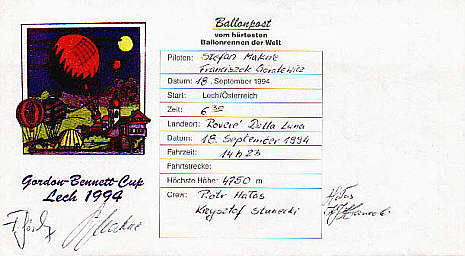 Ballonpost
vom härtesten
Ballonrennen der Welt
Piloten: Stefan Makné
Franciszek
Datum: 18. September 1994
Start: Lech/Österreich
Zeit: 6 30
Landeort: Roveré Della Luna
Datum: 18. September 1994
Fahrzeit: 14 h 23
Fahrtstrecke:
Höchste Höhe: 4750 m
Crew: Piotr Hałas
Krzysztof
Gordon-Bennett-Cup
Lech 1994